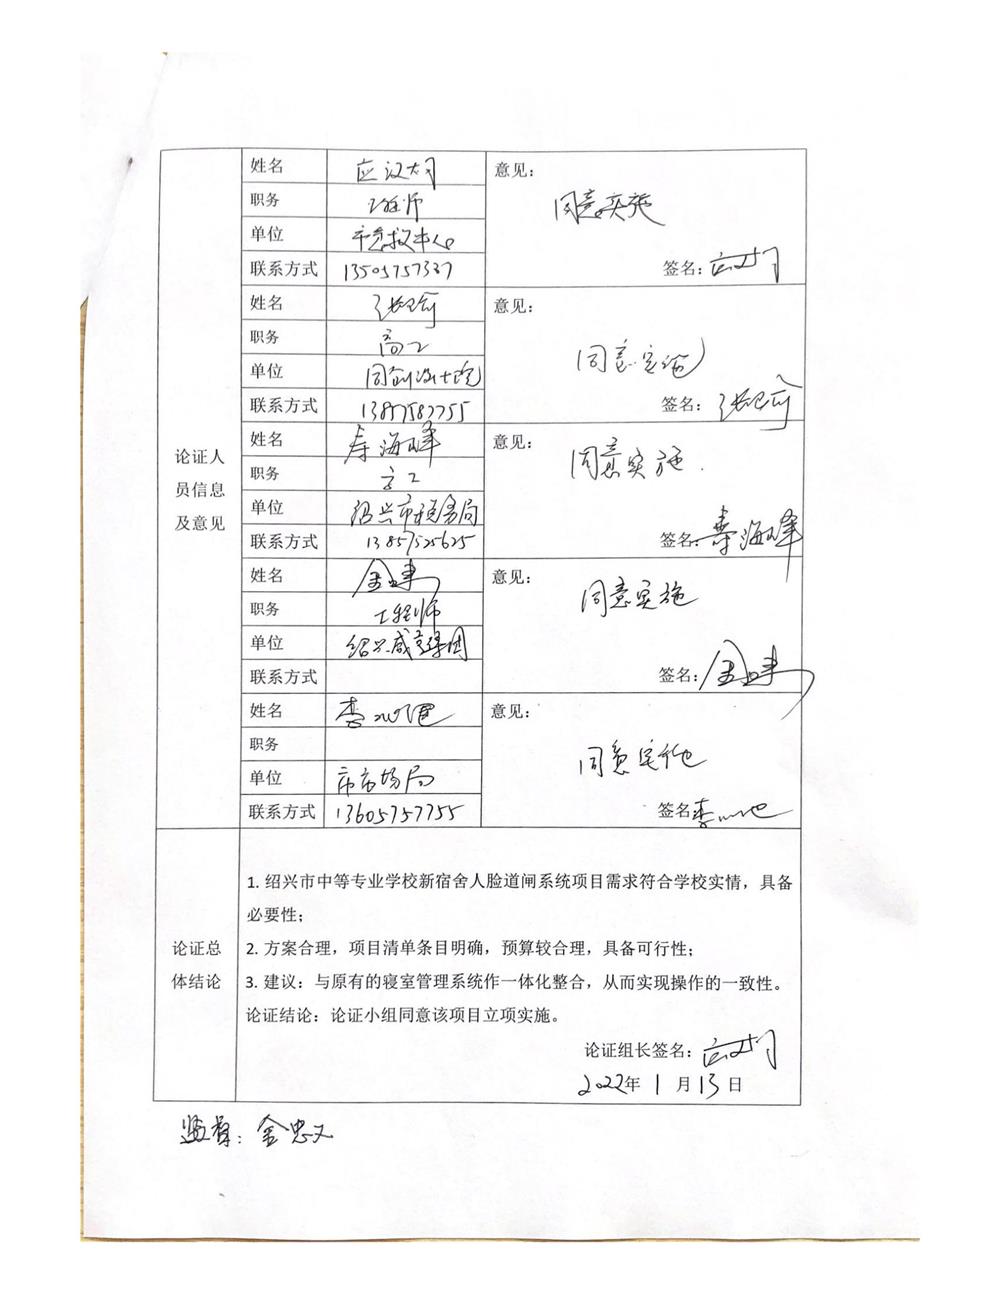 姓名 应汉材 意见：
职务 工程师 同意实施
单位 市急救中心
联系方式 13505757337 签名：
姓名 意见：
职务 高工 同意实施
单位 同创设计院
联系方式 13857587755 签名：
论证人
员信息
及意见
姓名 寿海峰 意见：
职务 高工 同意实施
单位 绍兴市税务局
联系方式 13857525625 签名：寿海峰
姓名 意见：
职务 工程师 同意实施
单位 绍兴咸亨集团
联系方式 签名：
姓名 意见：
职务 同意实施
单位 市市场局
联系方式 13605757755 签名
论证总
体结论
1. 绍兴市中等专业学校新宿舍人脸道闸系统项目需求符合学校实情，具备
必要性；
2. 方案合理，项目清单条目明确，预算较合理，具备可行性；
3. 建议：与原有的寝室管理系统作一体化整合，从而实现操作的一致性。
论证结论：论证小组同意该项目立项实施。
论证组长签名：
2022年 1 月 13 日
监督：金忠义